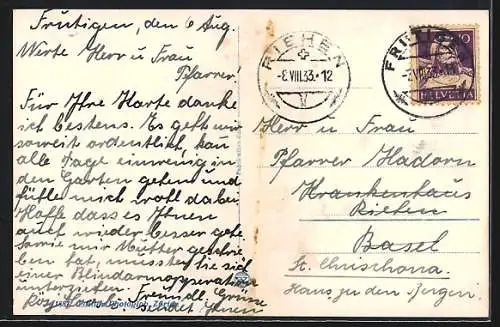 Frutigen, den 6 Aug.
Werte Herr u Frau
Pfarrer!
Für Ihre Karte danke
ich bestens. Es geht mir
soweit ordentlich, kan
alle Tage ein wenig in
den Garten gehen und
fühle mich wohl dabei
Hoffe dass es Ihnen
auch wieder besser gehe
sowie mir Mutter geschrie
ben hat, mussten Sie sich
einer Blindarmoperation
unterziehen. Freundl. Grüsse
sendet Ihnen
RIEHEN
-8.VIII.33.-12
V
FRUTIGEN
HELVETIA
Herr u Frau
Pfarrer Hadorn
Krankenhaus
Riehen
Basel
St. Chrischona
Haus zu den Bergen.